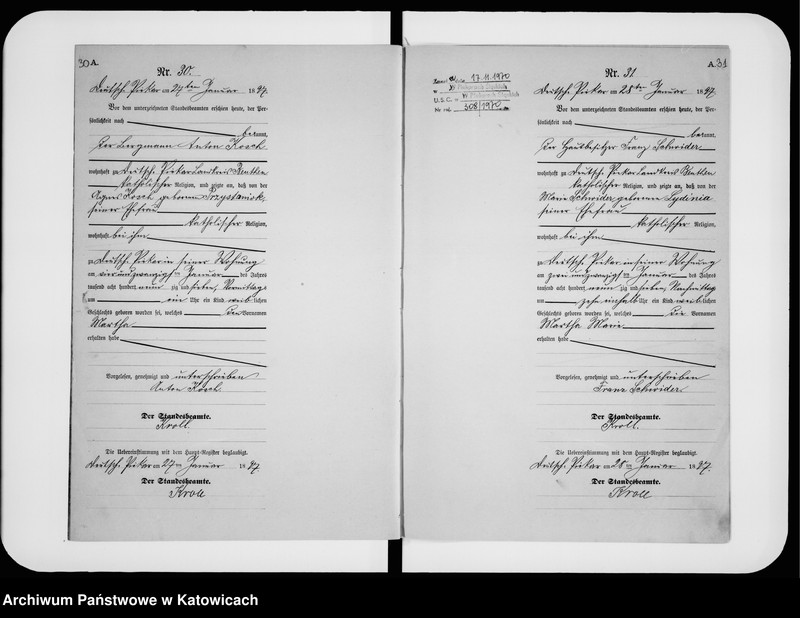 30 A.
Nr. 30.
Deutsch Piekar am 27ten Januar 1897.
Vor dem unterzeichneten Standesbeamten erschien heute, der Per-
sönlichkeit nach
bekannt,
der Bergmann Anton Kosch
wohnhaft zu Deutsch Piekar Landkreis Beuthen
katholischer Religion, und zeigte an, daß von der
Agnes Kosch geborenen
seiner Ehefrau
katholischer Religion,
wohnhaft bei ihm
zu Deutsch Piekar in seiner Wohnung
am vierundzwanzigsten Januar des Jahres
tausend acht hundert neunzig und sieben, Vormittags
um ein Uhr ein Kind weiblichen
Geschlechts geboren worden sei, welches den Vornamen
Martha
erhalten habe
Vorgelesen, genehmigt und unterschrieben
Anton Kosch
Der Standesbeamte.
Kroll.
Die Uebereinstimmung mit dem Haupt-Register beglaubigt.
Deutsch Piekar am 27ten Januar 1897.
Der Standesbeamte.
Kroll
A. 31
17.11.1970
U.S.C. w
308/1970
Nr. 31.
Deutsch Piekar am 28ten Januar 1897.
Vor dem unterzeichneten Standesbeamten erschien heute, der Per-
sönlichkeit nach
bekannt,
der Hausbesitzer Franz Schneider
wohnhaft zu Deutsch Piekar Landkreis Beuthen
katholischer Religion, und zeigte an, daß von der
Marie Schneider geborenen Lydinia
seiner Ehefrau
katholischer Religion,
wohnhaft bei ihm
zu Deutsch Piekar in seiner Wohnung
am zweiundzwanzigsten Januar des Jahres
tausend acht hundert neunzig und sieben, Nachmittags
um zehn einhalb Uhr ein Kind weiblichen
Geschlechts geboren worden sei, welches die Vornamen
Martha Marie
erhalten habe
Vorgelesen, genehmigt und unterschrieben
Franz Schneider
Der Standesbeamte.
Kroll.
Die Uebereinstimmung mit dem Haupt-Register beglaubigt.
Deutsch Piekar am 28ten Januar 1897.
Der Standesbeamte.
Kroll
Archiwum Państwowe w Katowicach